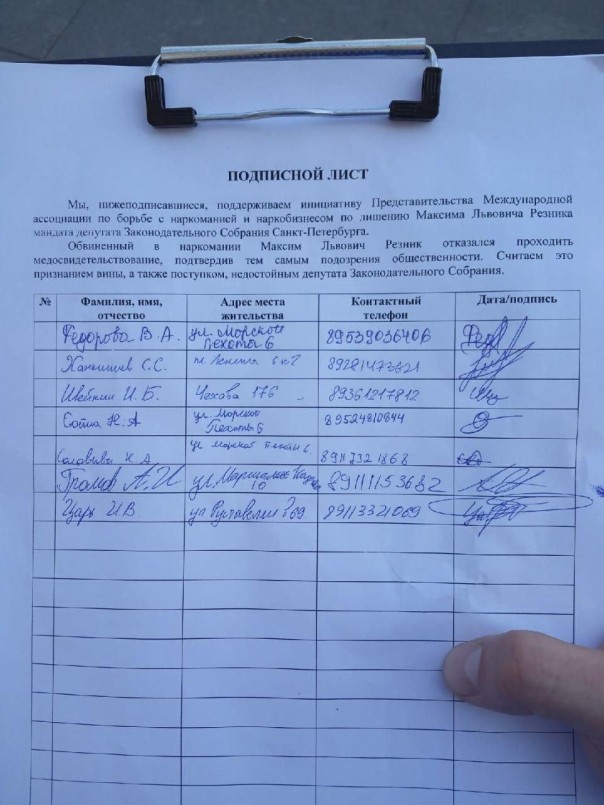 ПОДПИСНОЙ ЛИСТ
Мы, нижеподписавшиеся, поддерживаем инициативу Представительства Международной
ассоциации по борьбе с наркоманией и наркобизнесом по лишению Максима Львовича Резника
мандата депутата Законодательного Собрания Санкт-Петербурга.
Обвиненный в наркомании Максим Львович Резник отказался проходить
медосвидетельствование, подтвердив тем самым подозрения общественности. Считаем это
признанием вины, а также поступком, недостойный депутата Законодательного Собрания.
№ Фамилия, имя, отчество Адрес места жительства Контактный телефон Дата/подпись
Федорова В.А. ул. Морской Пехоты 6 89539036406
С.С. 89281473821
И.Б. Чехова 176 89361217812
Н.А ул. Морской Пехоты 6 89524810844
Соловьева Н.А. ул Морской Пехоты 6 8911 732 1868
Громов А.И ул. Маршала 10 89111153682
Царь И В ул Руставелли 89113321069